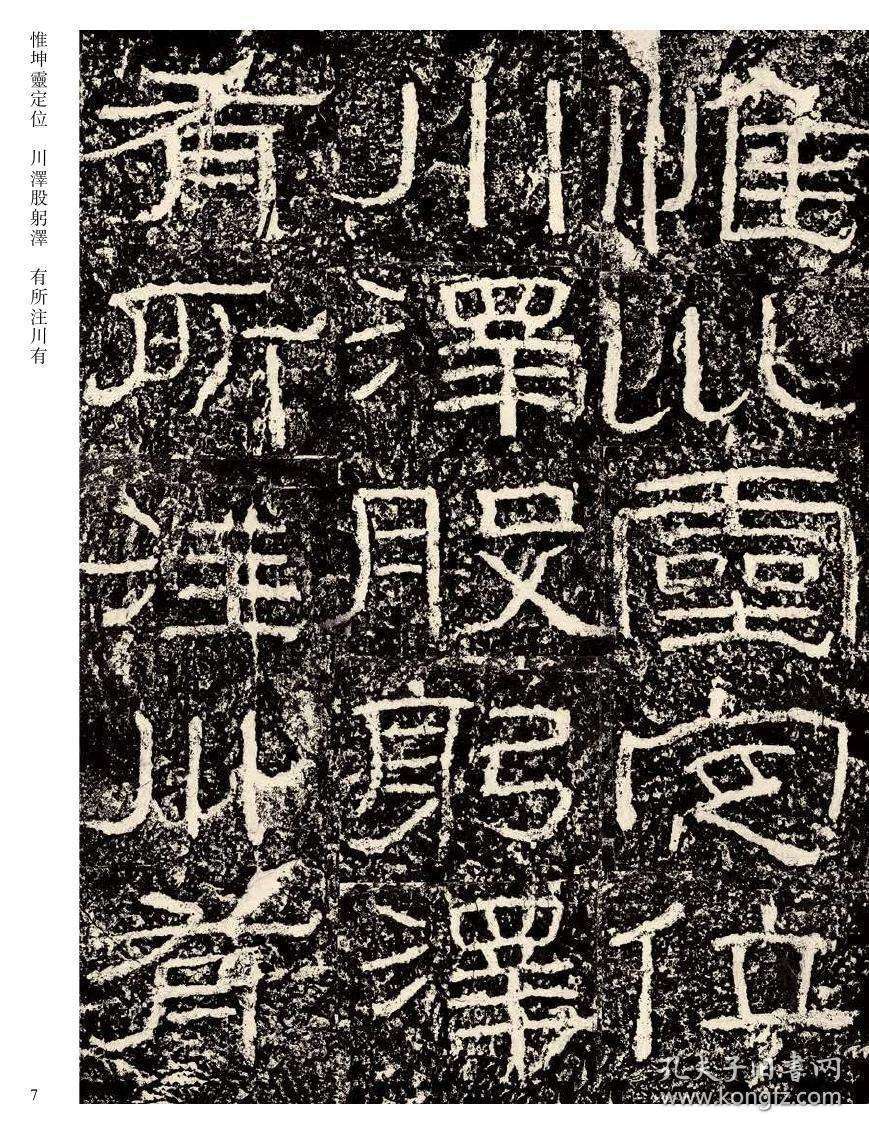 惟坤靈定位
川澤股躬澤
有所注川有
惟坤靈定位 川澤股躬澤 有所注川有
7
孔夫子旧书网
www.kongfz.com